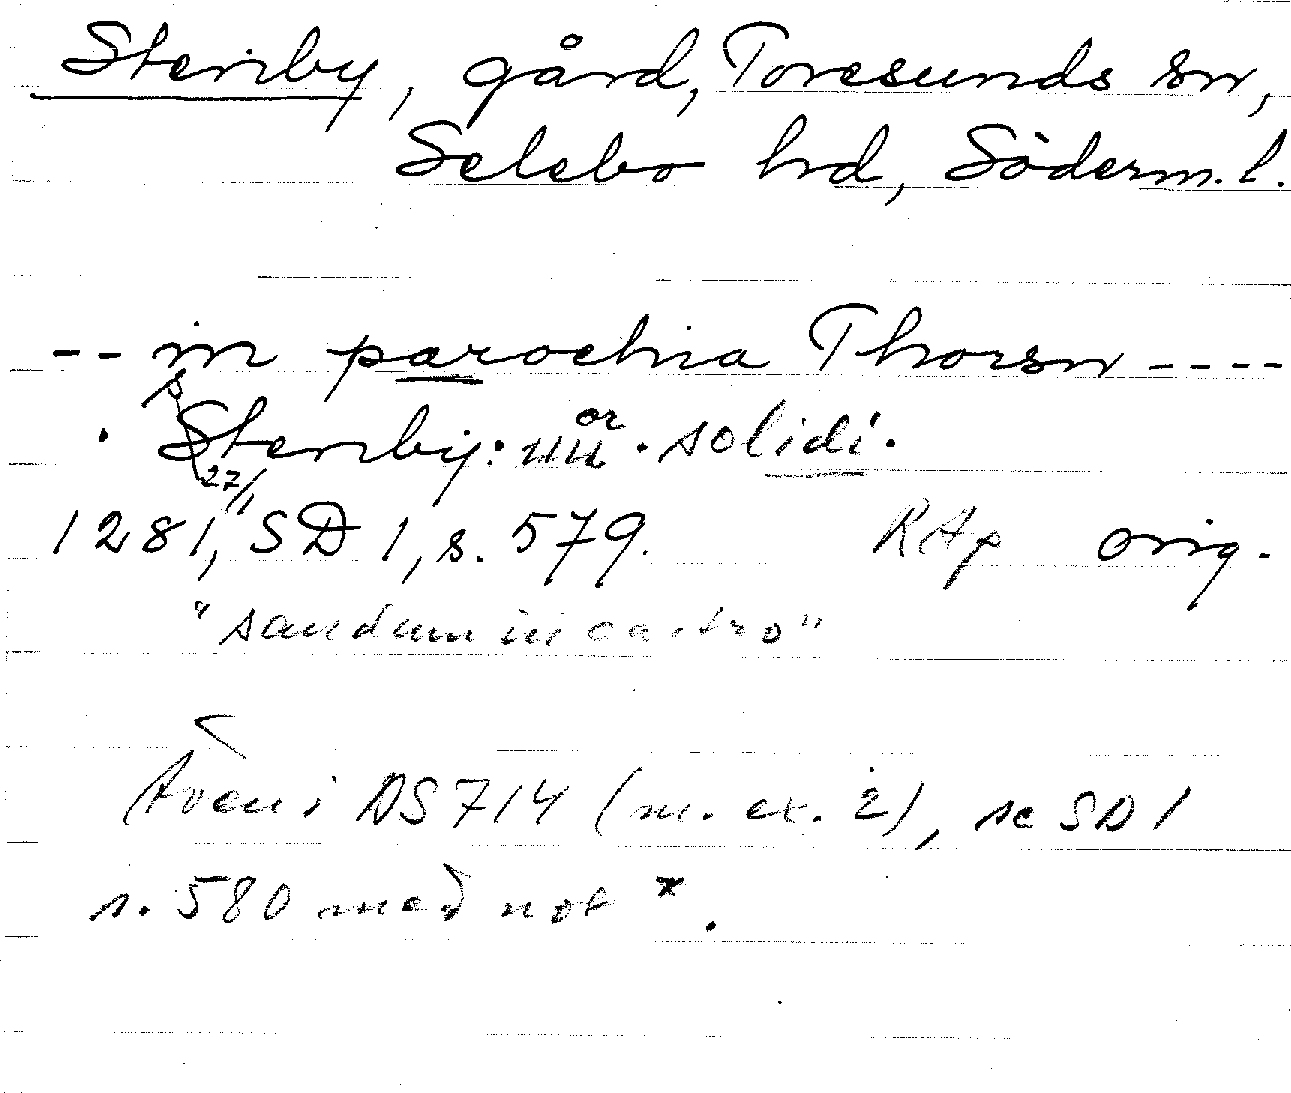 Stenby, gård, Toresunds sn,
Selebo hd, Söderm. l.
-- in parochia Thorsn ----
. Stenby: iiii or . solidi.
27/1
1281, SD 1, s. 579. RAp orig.
" in castro"
Även i DS 714 (m. ex. 2), se SD 1
s. 580 med not *.